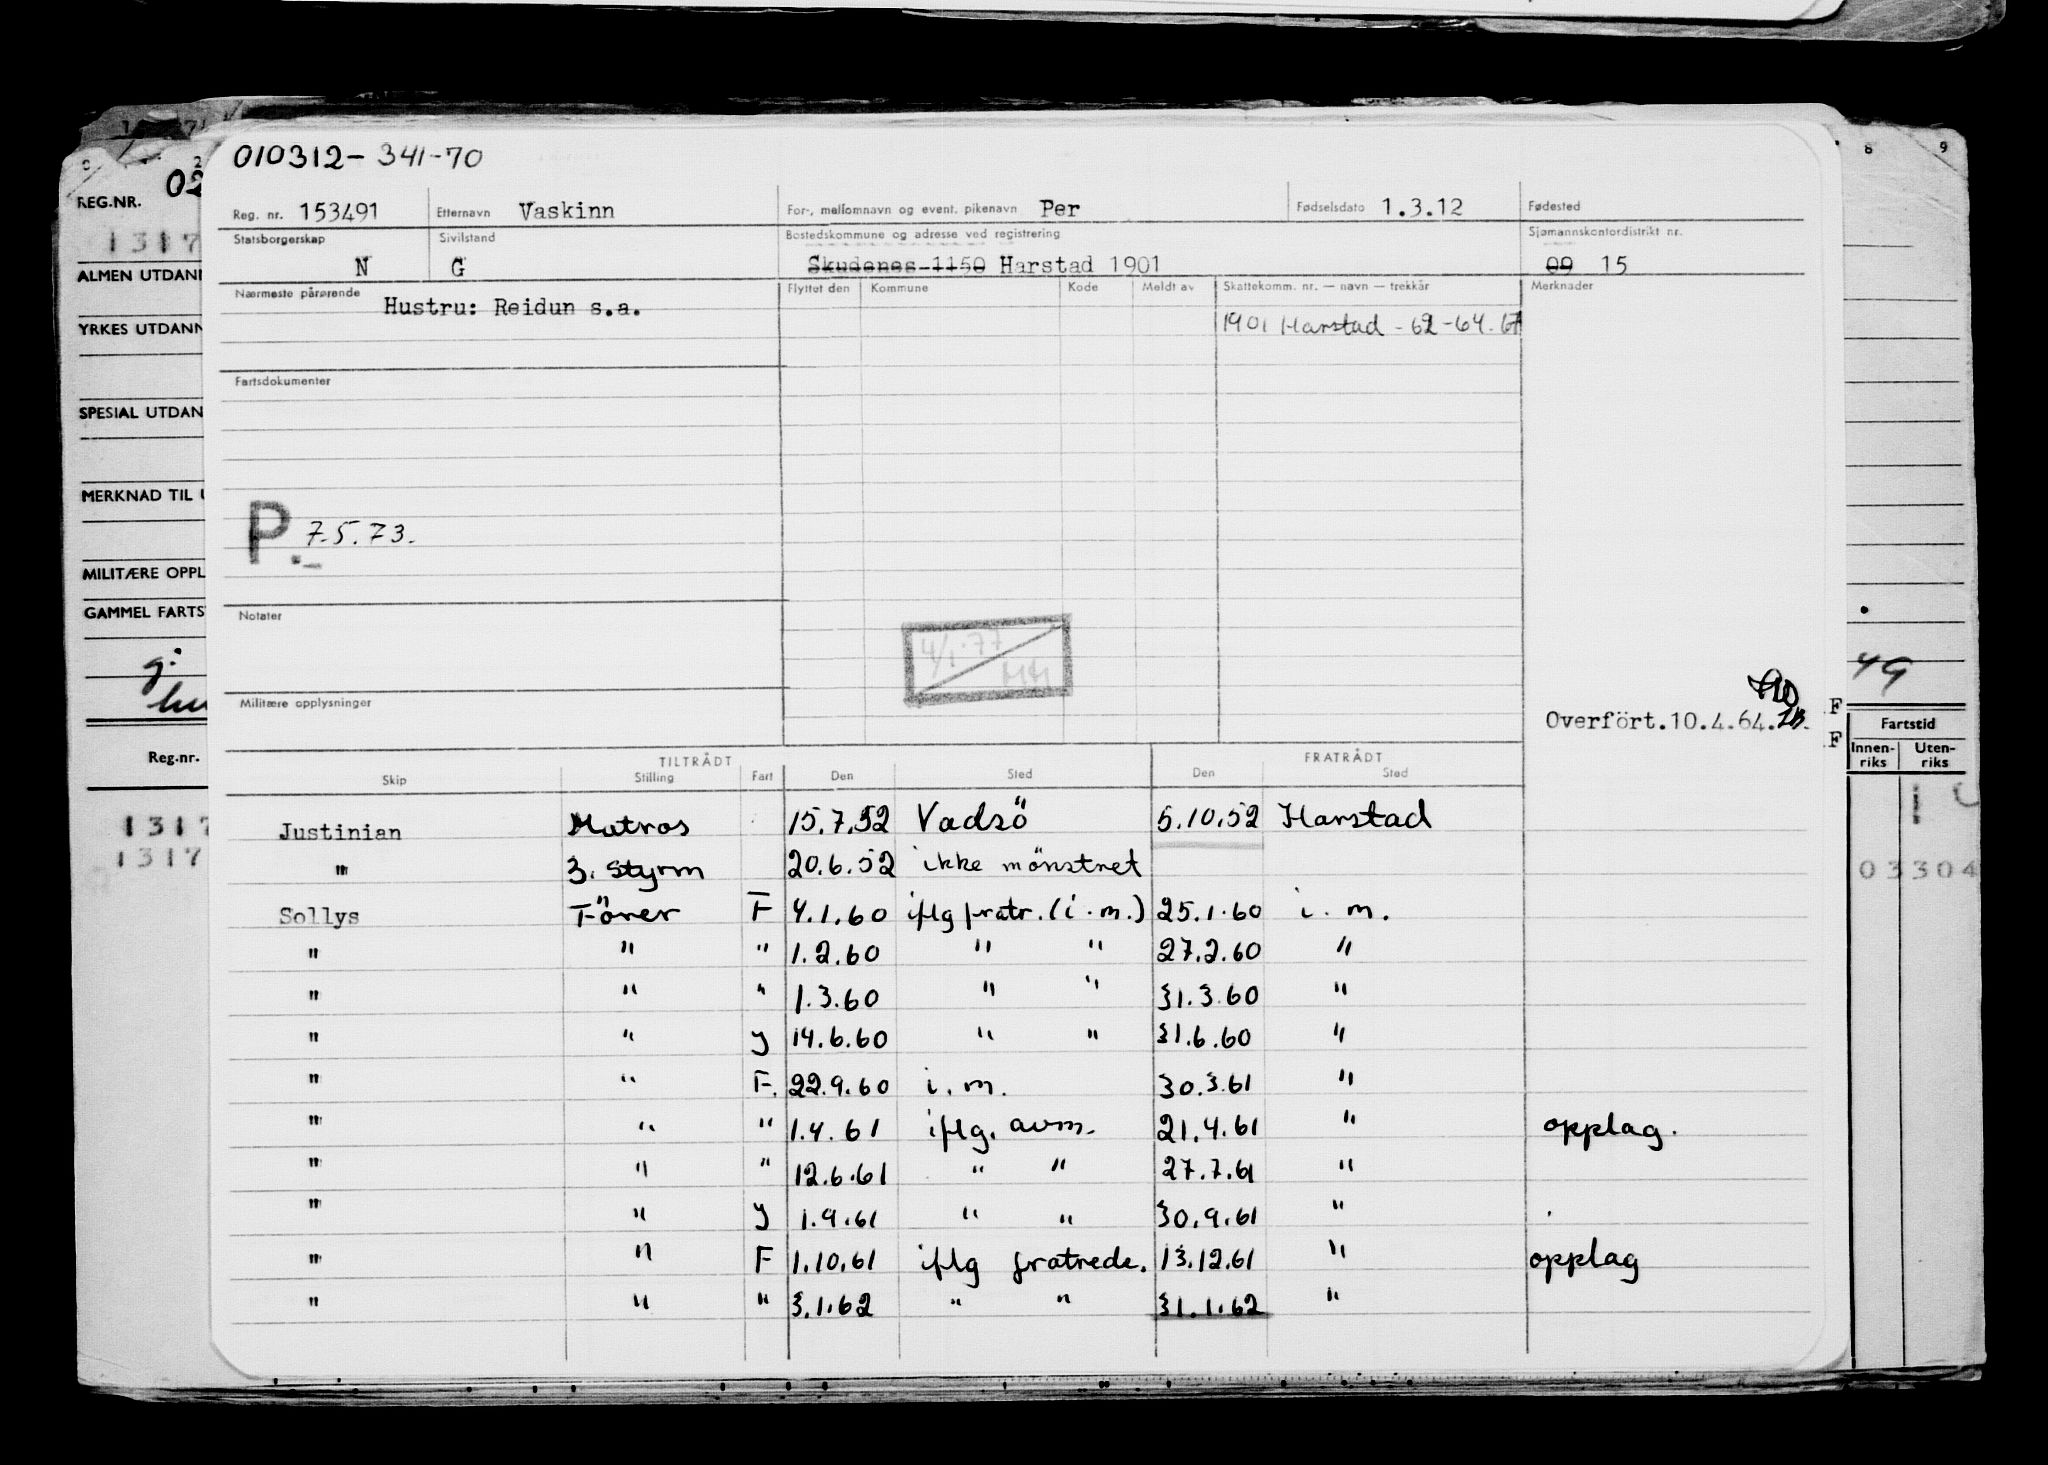 010312-341-70
Reg. nr. 153491 Etternavn Vaskinn For-, mellomnavn og event. pikenavn Per Fødselsdato 1.3.12 Fødested
Statsborgerskap N Sivilstand G Bostedskommune og adresse ved registrering Skudenes 1150 Harstad 1901 Sjømannskontordistrikt nr. 09 15
Nærmeste pårørende Hustru: Reidun s.a. Flyttet den Kommune Kode Meldt av Skattekomm. nr. — navn — trekkår Merknader
1901 Harstad - 62-64.
Fartsdokumenter
P. 7.5.73.
Notater
4/1.77
Militære opplysninger
Overført.10.4.64.
TILTRÅDT FRATRÅDT
Skip Stilling Fart Den Sted Den Sted
Justinian Matros 15.7.52 Vadsö 5.10.52 Harstad
" 3. Styrm 20.6.52 ikke mönstret
Sollys Förer F 4.1.60 iflg fratr. (i.m.) 25.1.60 i.m.
" " " 1.2.60 " " 27.2.60 "
" " " 1.3.60 " " 31.3.60 "
" " y 14.6.60 " " 31.6.60 "
" " F. 22.9.60 i.m. 30.3.61 "
" " " 1.4.61 iflg. avm. 21.4.61 " opplag.
" " " 12.6.61 " " 27.7.61 "
" " y 1.9.61 " " 30.9.61 "
" " F 1.10.61 iflg fratrede. 13.12.61 " opplag
" " " 3.1.62 " " 31.1.62 "
REG.NR. 02
1317
ALMEN UTDANN
YRKES UTDANN
SPESIAL UTDAN
MERKNAD TIL
MILITÆRE OPPL
GAMMEL FARTS
g.
Reg.nr.
1317
1317
8 9
49
F
F
Fartstid
Innen-riks Uten-riks
03304